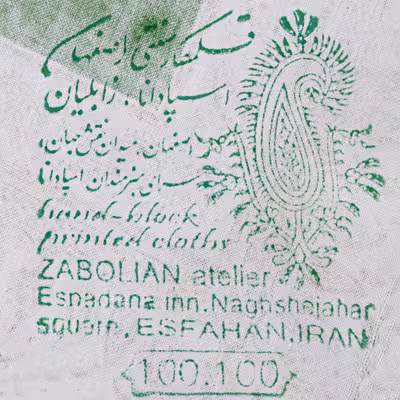 قلمکار سنتی اصفهان
اسپادانا زابلیان
اصفهان، میدان نقش جهان،
سرای هنرمندان اسپادانا
hand-block
printed cloths
ZABOLIAN atelier
Espadana inn. Naghshejahan
squern. ESFAHAN. IRAN
100.100